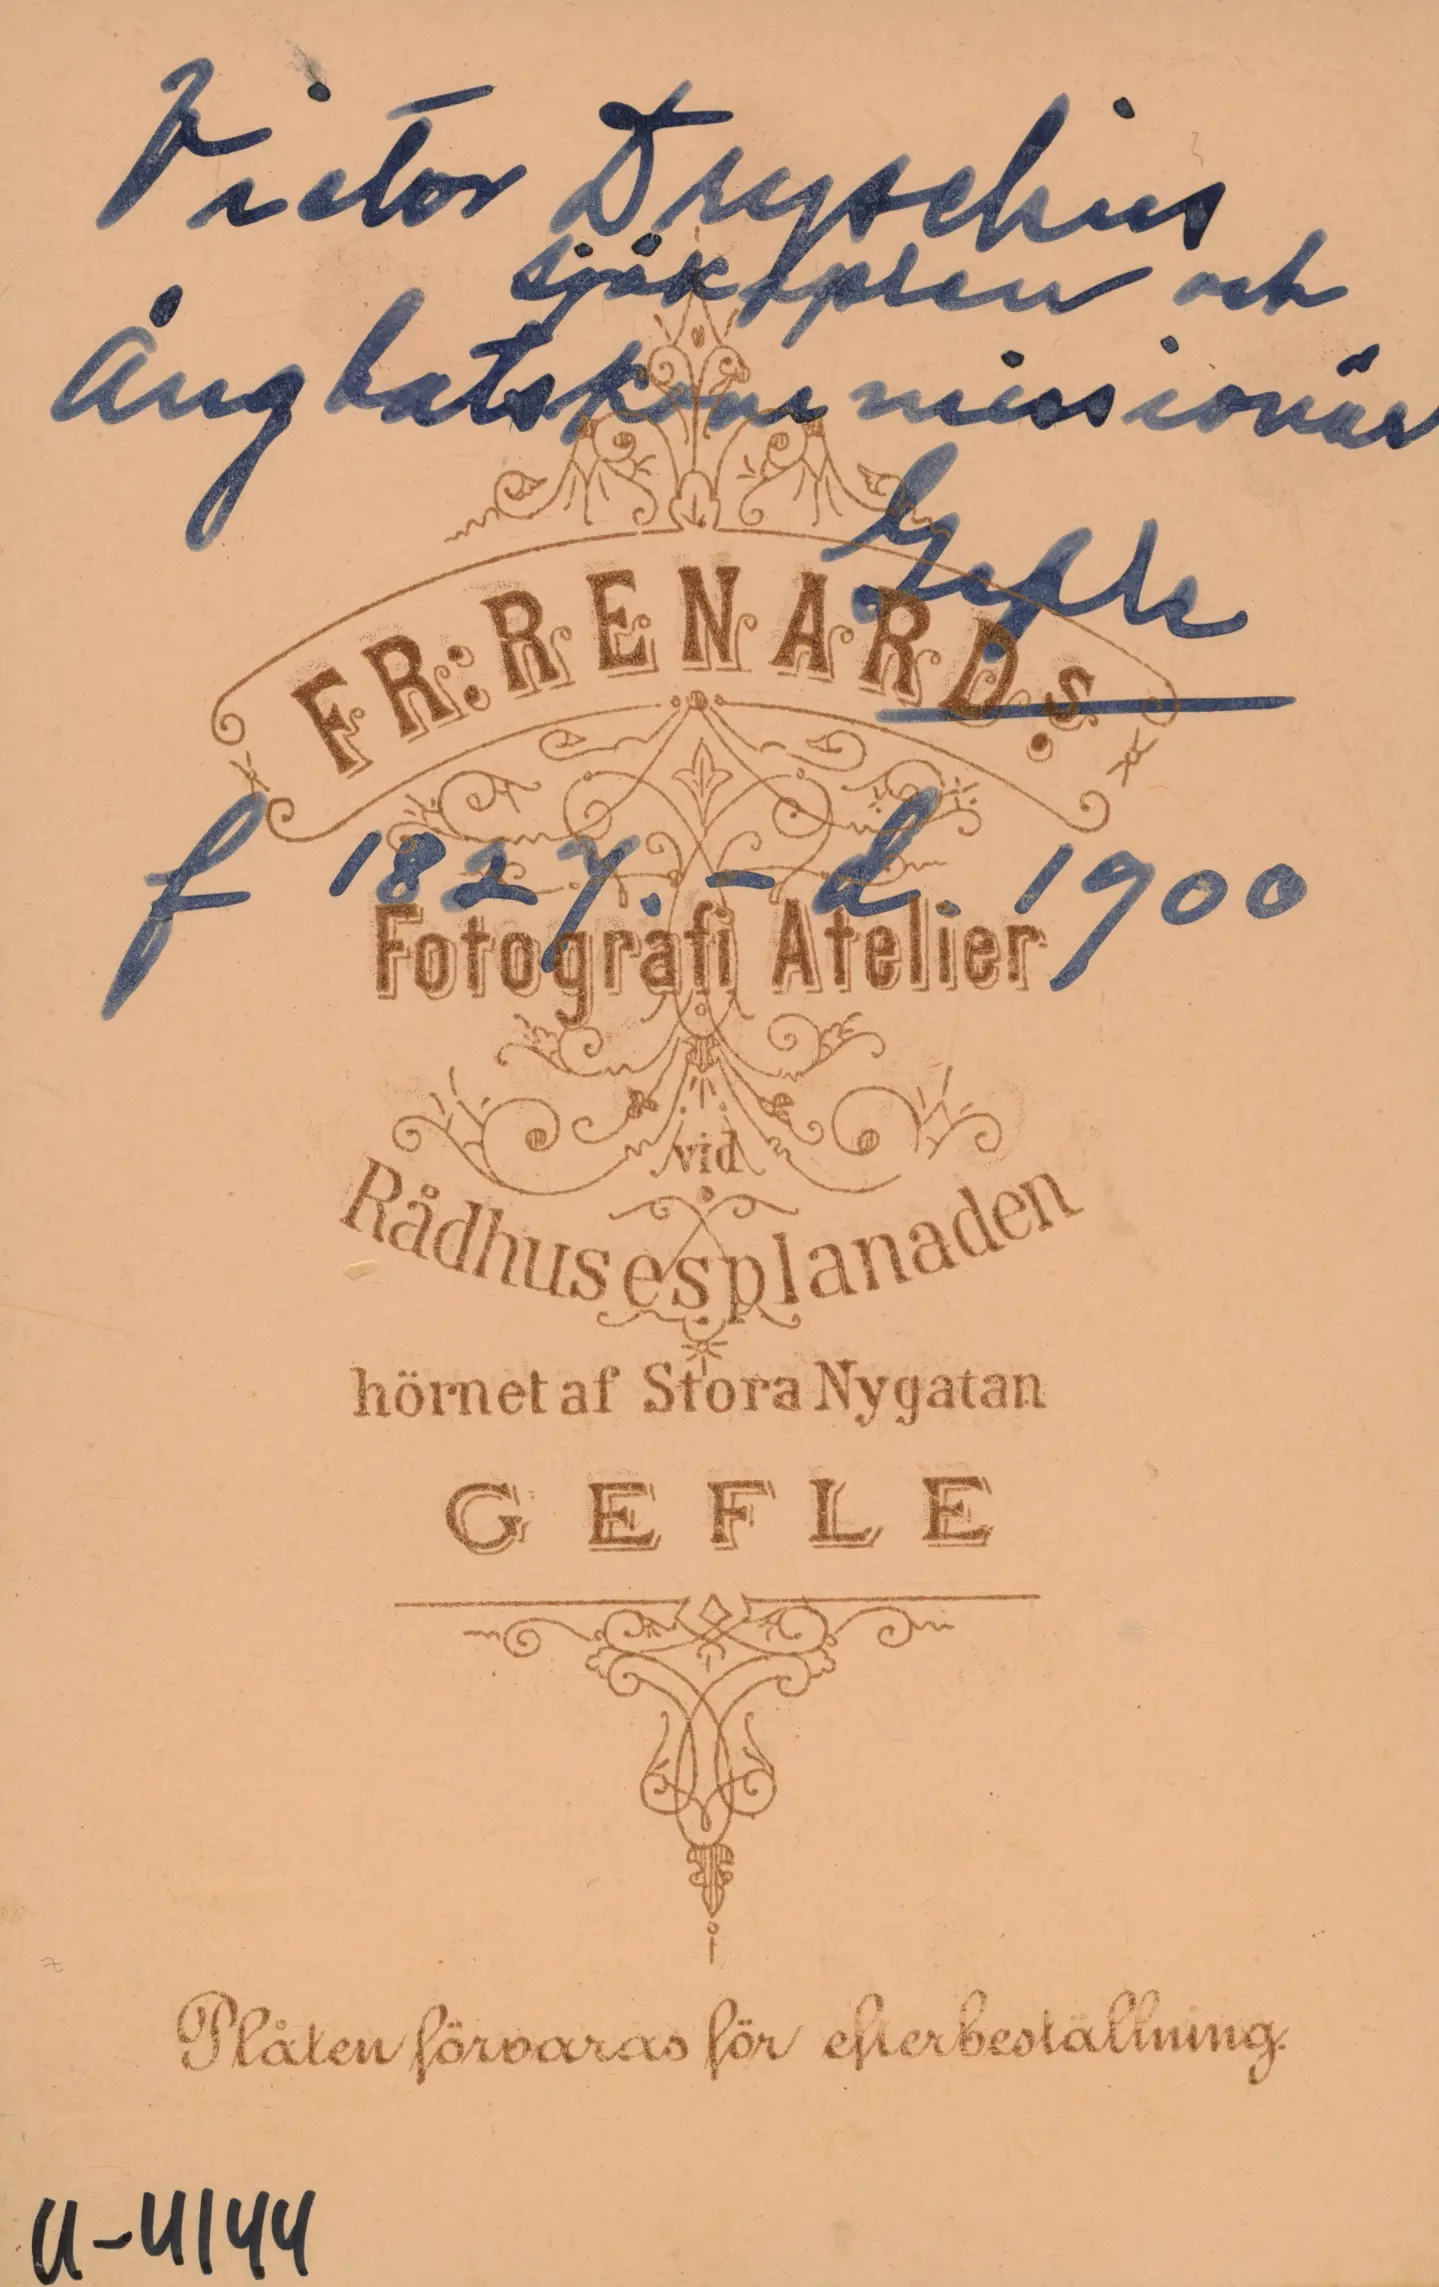 Victor Dryselius
sjökapten och
Ångbåtskommissionär
Gefle
FR: RENARDs
f 1827. - d. 1900
Fotografi Atelier
vid
Rådhusesplanaden
hörnet af Stora Nygatan
GEFLE
Plåten förvaras för efterbeställning.
U-4144